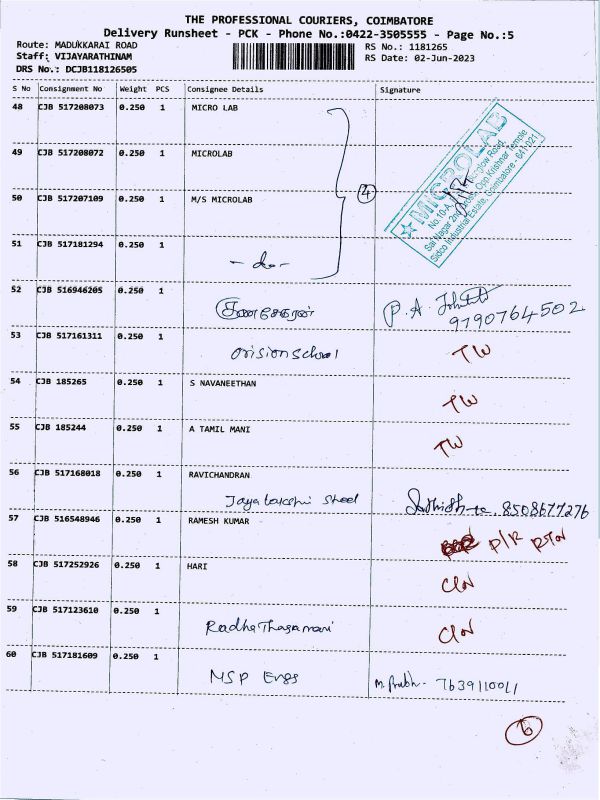 THE PROFESSIONAL COURIERS, COIMBATORE
Delivery Runsheet - PCK - Phone No.:0422-3505555 - Page No.:5
Route: MADUKKARAI ROAD RS No.: 1181265
Staff: VIJAYARATHINAM RS Date: 02-Jun-2023
DRS No.: DCJB118126505
S No Consignment No Weight PCS Consignee Details Signature
48 CJB 517208073 0.250 1 MICRO LAB
49 CJB 517208072 0.250 1 MICROLAB
4
50 CJB 517207109 0.250 1 M/S MICROLAB
MICROLAB
No.10-A,
Sai Nagar 2nd Opp Krishnar Temple
Sidco Industrial Estate, Coimbatore - 641 021
51 CJB 517181294 0.250 1
- do -
52 CJB 516946205 0.250 1
குணசேகரன் P. A. 9790764502
53 CJB 517161311 0.250 1
Orision School TW
54 CJB 185265 0.250 1 S NAVANEETHAN
TW
55 CJB 185244 0.250 1 A TAMIL MANI
TW
56 CJB 517168018 0.250 1 RAVICHANDRAN
Jayalakshi Steel 8508677276
57 CJB 516548946 0.250 1 RAMESH KUMAR
P/R RTN
58 CJB 517252926 0.250 1 HARI
CLN
59 CJB 517123610 0.250 1
RadhaThagamani CLN
60 CJB 517181609 0.250 1
MSP Engs M. Prabh - 7639110011
6